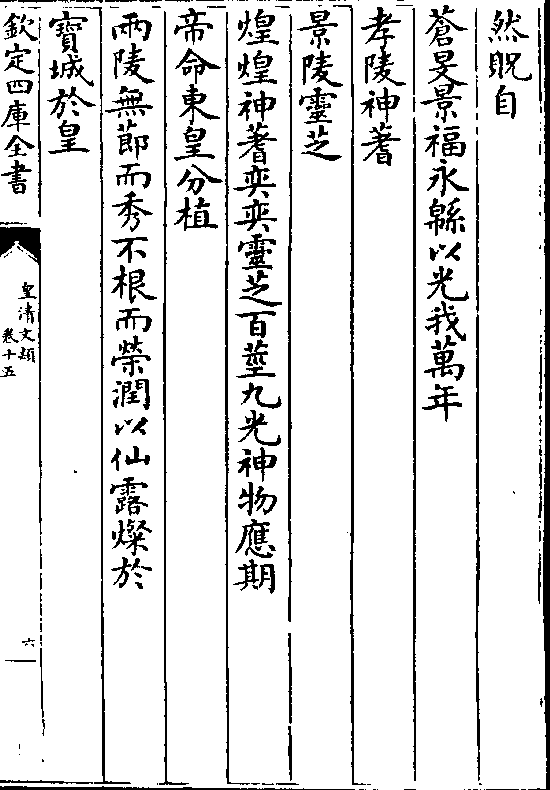 然貺自
蒼旻景福永緜以光我萬年
孝陵神蓍
景陵靈芝
煌煌神蓍奕奕靈芝百莖九光神物應期
帝命東皇分植
兩陵無節而秀不根而榮潤以仙露燦於
寶城於皇
欽定四庫全書
皇清文穎
卷十五
六